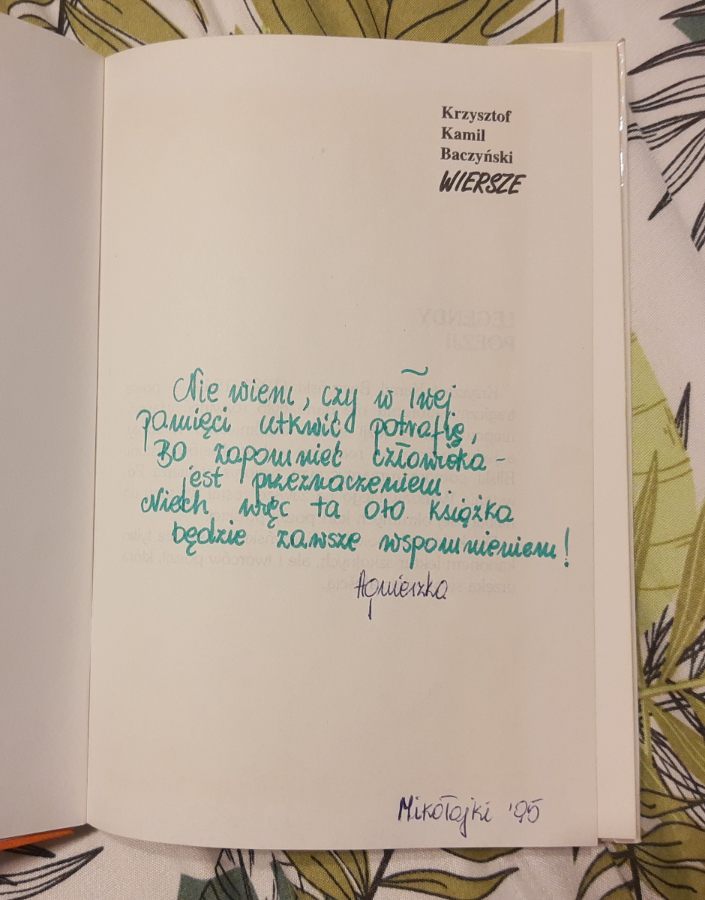 Krzysztof
Kamil
Baczyński
WIERSZE
LEGENDY
POEZJI
Nie wiem, czy w Twej
pamięci utkwić potrafię,
Bo zapomnieć człowieka -
jest przeznaczeniem.
Niech więc ta oto książka
będzie zawsze wspomnieniem!
Agnieszka
Mikołajki '95